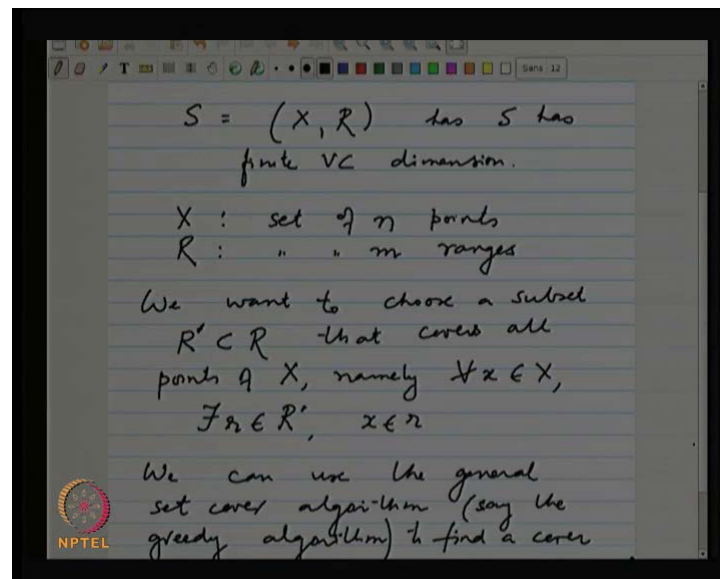 Sans 12
S = (X, R) has S has
finite VC dimension.
X : set of n points
R : " " m ranges
We want to choose a subset
R' ⊂ R that covers all
points of X, namely ∀x ∈ X,
∃r ∈ R', x ∈ r
We can use the general
set cover algorithm (say the
greedy algorithm) to find a cover
NPTEL